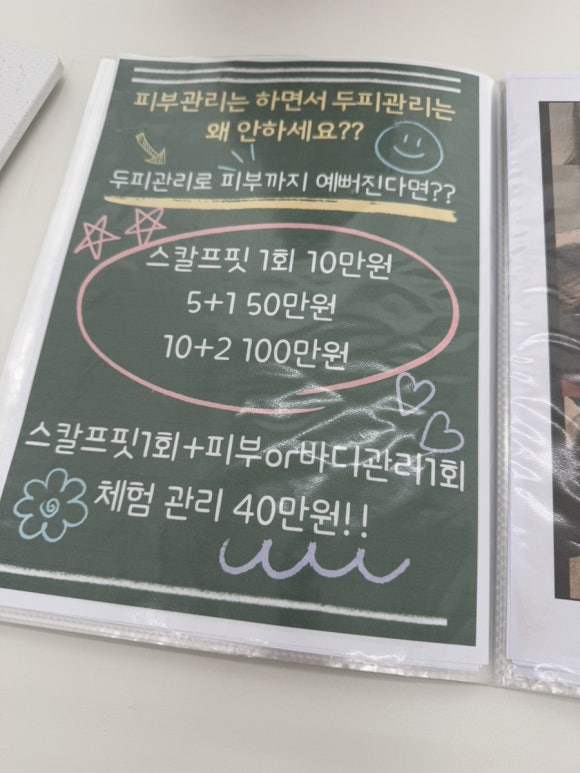 피부관리는 하면서 두피관리는
왜 안하세요??
두피관리로 피부까지 예뻐진다면??
스칼프핏 1회 10만원
5+1 50만원
10+2 100만원
스칼프핏1회+피부or바디관리1회
체험 관리 40만원!!